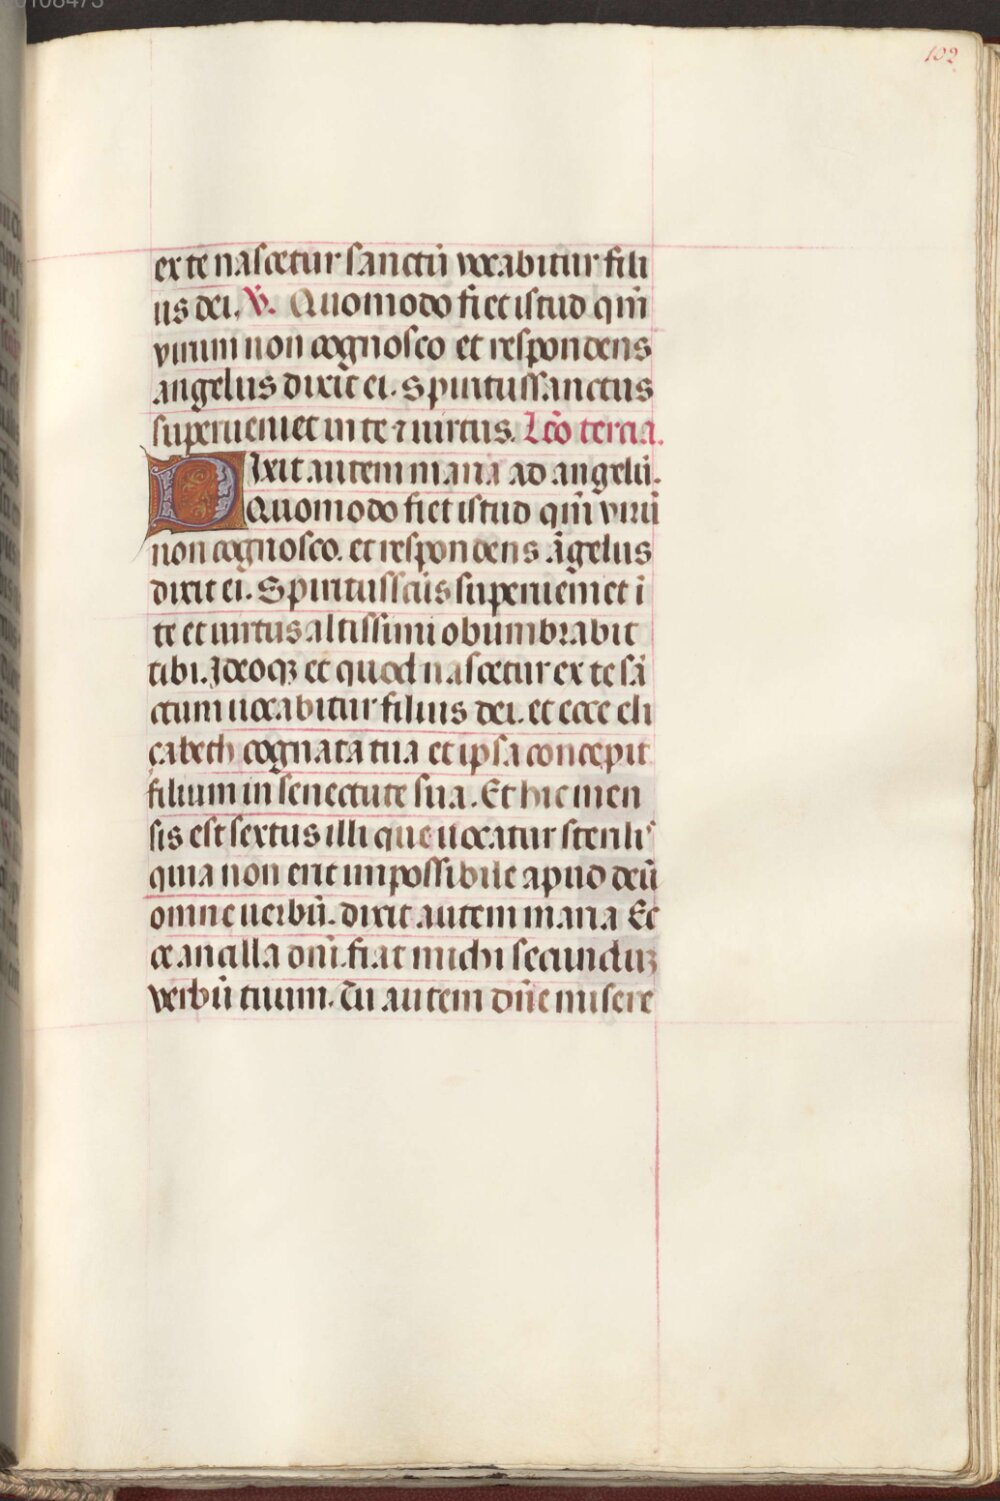 00108473
102
ex te nascetur sanctū vocabitur fili
us dei. V̄. Quomodo fiet istud qm̄
virum non cognosco et respondens
angelus dixit ei. Spiritussanctus
superueniet in te ⁊ uirtus. Lc̄o tercia.
Dixit autem maria ad angelū.
Quomodo fiet istud qm̄ virū
non cognosco. et respondens āgelus
dixit ei. Spiritusscūs superueniet ī
te et uirtus altissimi obumbrabit
tibi. Ideoqꝫ et quod nascetur ex te sā
ctum uocabitur filius dei. et ecce eli
çabeth cognata tua et ipsa concepit
filium in senectute sua. Et hic men
sis est sextus illi que uocatur sterilis
quia non erit impossibile apud deū
omne uerbū. dixit autem maria Ec
ce ancilla dn̄i. fiat michi secunduꝫ
verbū tuum. Tu autem dn̄e misere